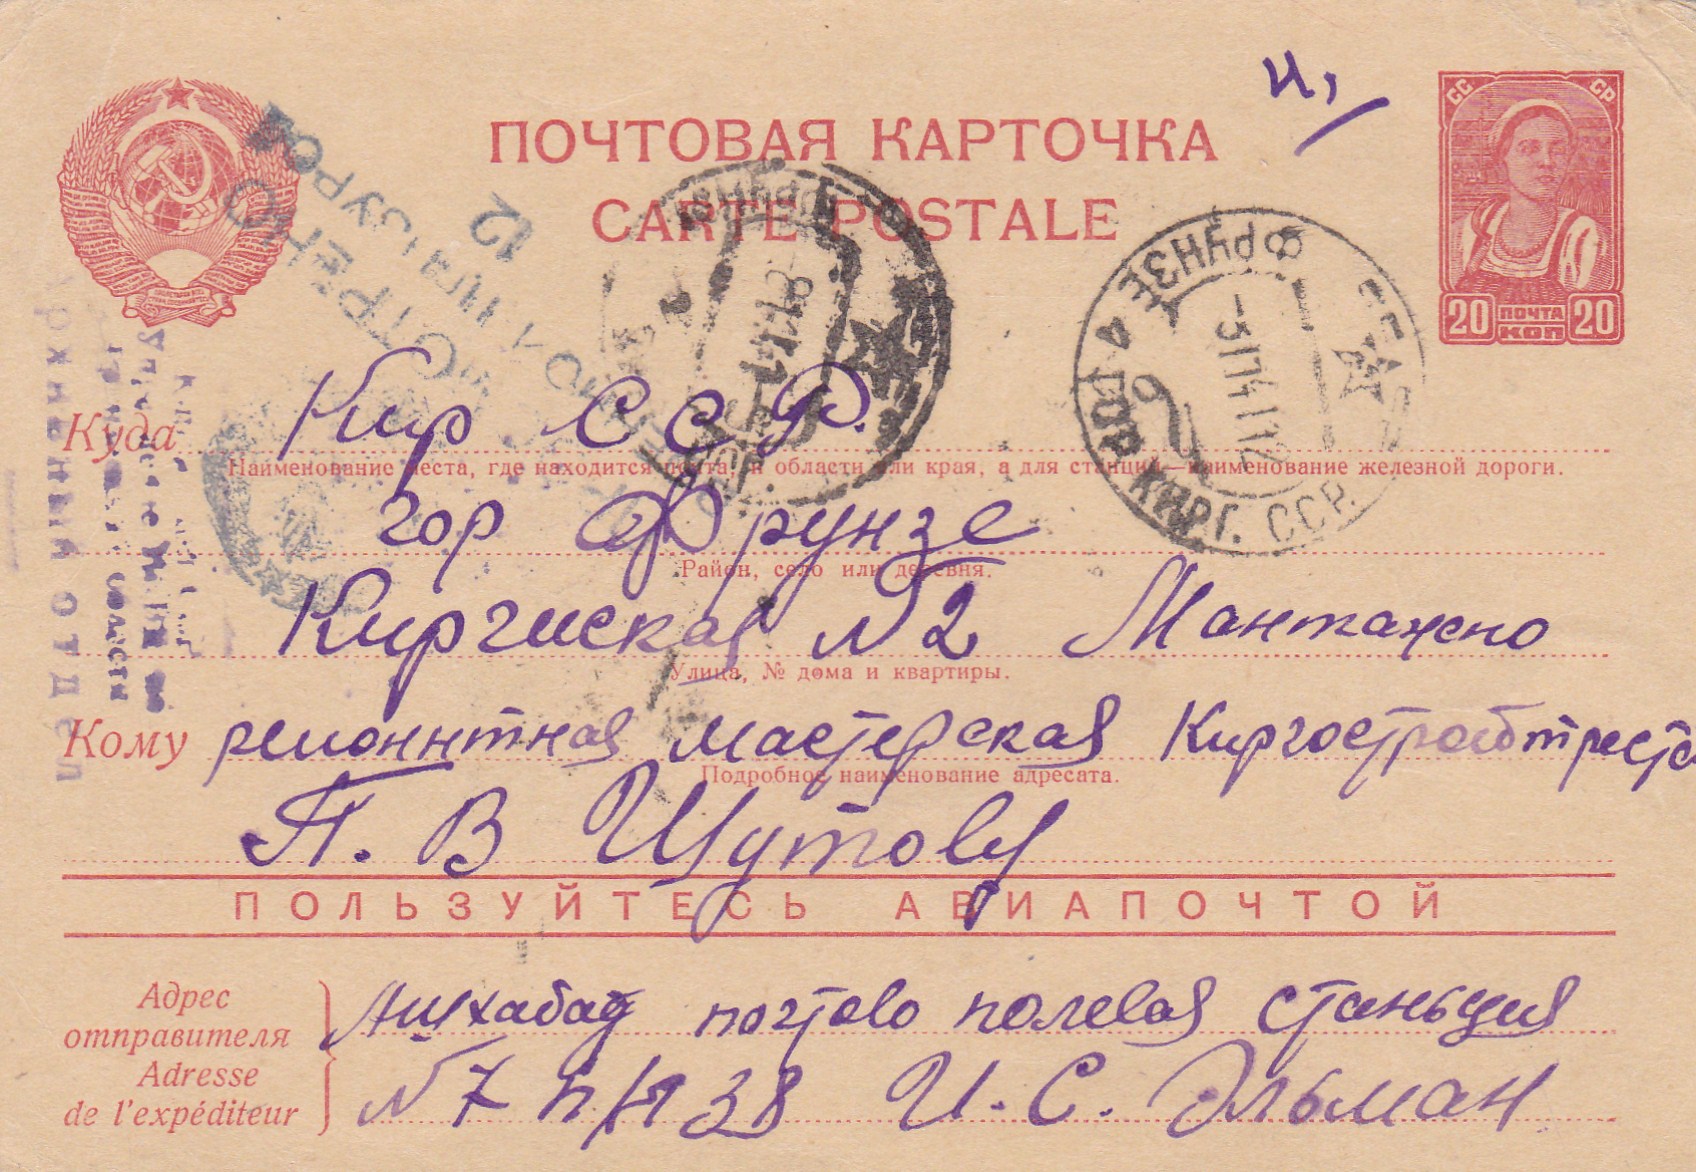 ПОЧТОВАЯ КАРТОЧКА
CARTE POSTALE
И,
СС СР
20 ПОЧТА КОП 20
ПРОСМОТРЕНО
Военной Цензурой
12
ФРУНЗЕ
ФРУНЗЕ 4
КИРГ. ССР.
Куда Кир С С Р.
Наименование места, где находится почта, и области или края, а для станций—наименование железной дороги.
гор Фрунзе
Район, село или деревня.
Киргиская №2 Мантажно
Улица, № дома и квартиры.
Кому ремоннтная мастерская Киргостройтреста
Подробное наименование адресата.
П. В Шутову
ПОЛЬЗУЙТЕСЬ АВИАПОЧТОЙ
Адрес отправителя
Adresse de l'expéditeur
Ашхабад почтово полевая станьция
№7 п/я 38 И. С. Эльман